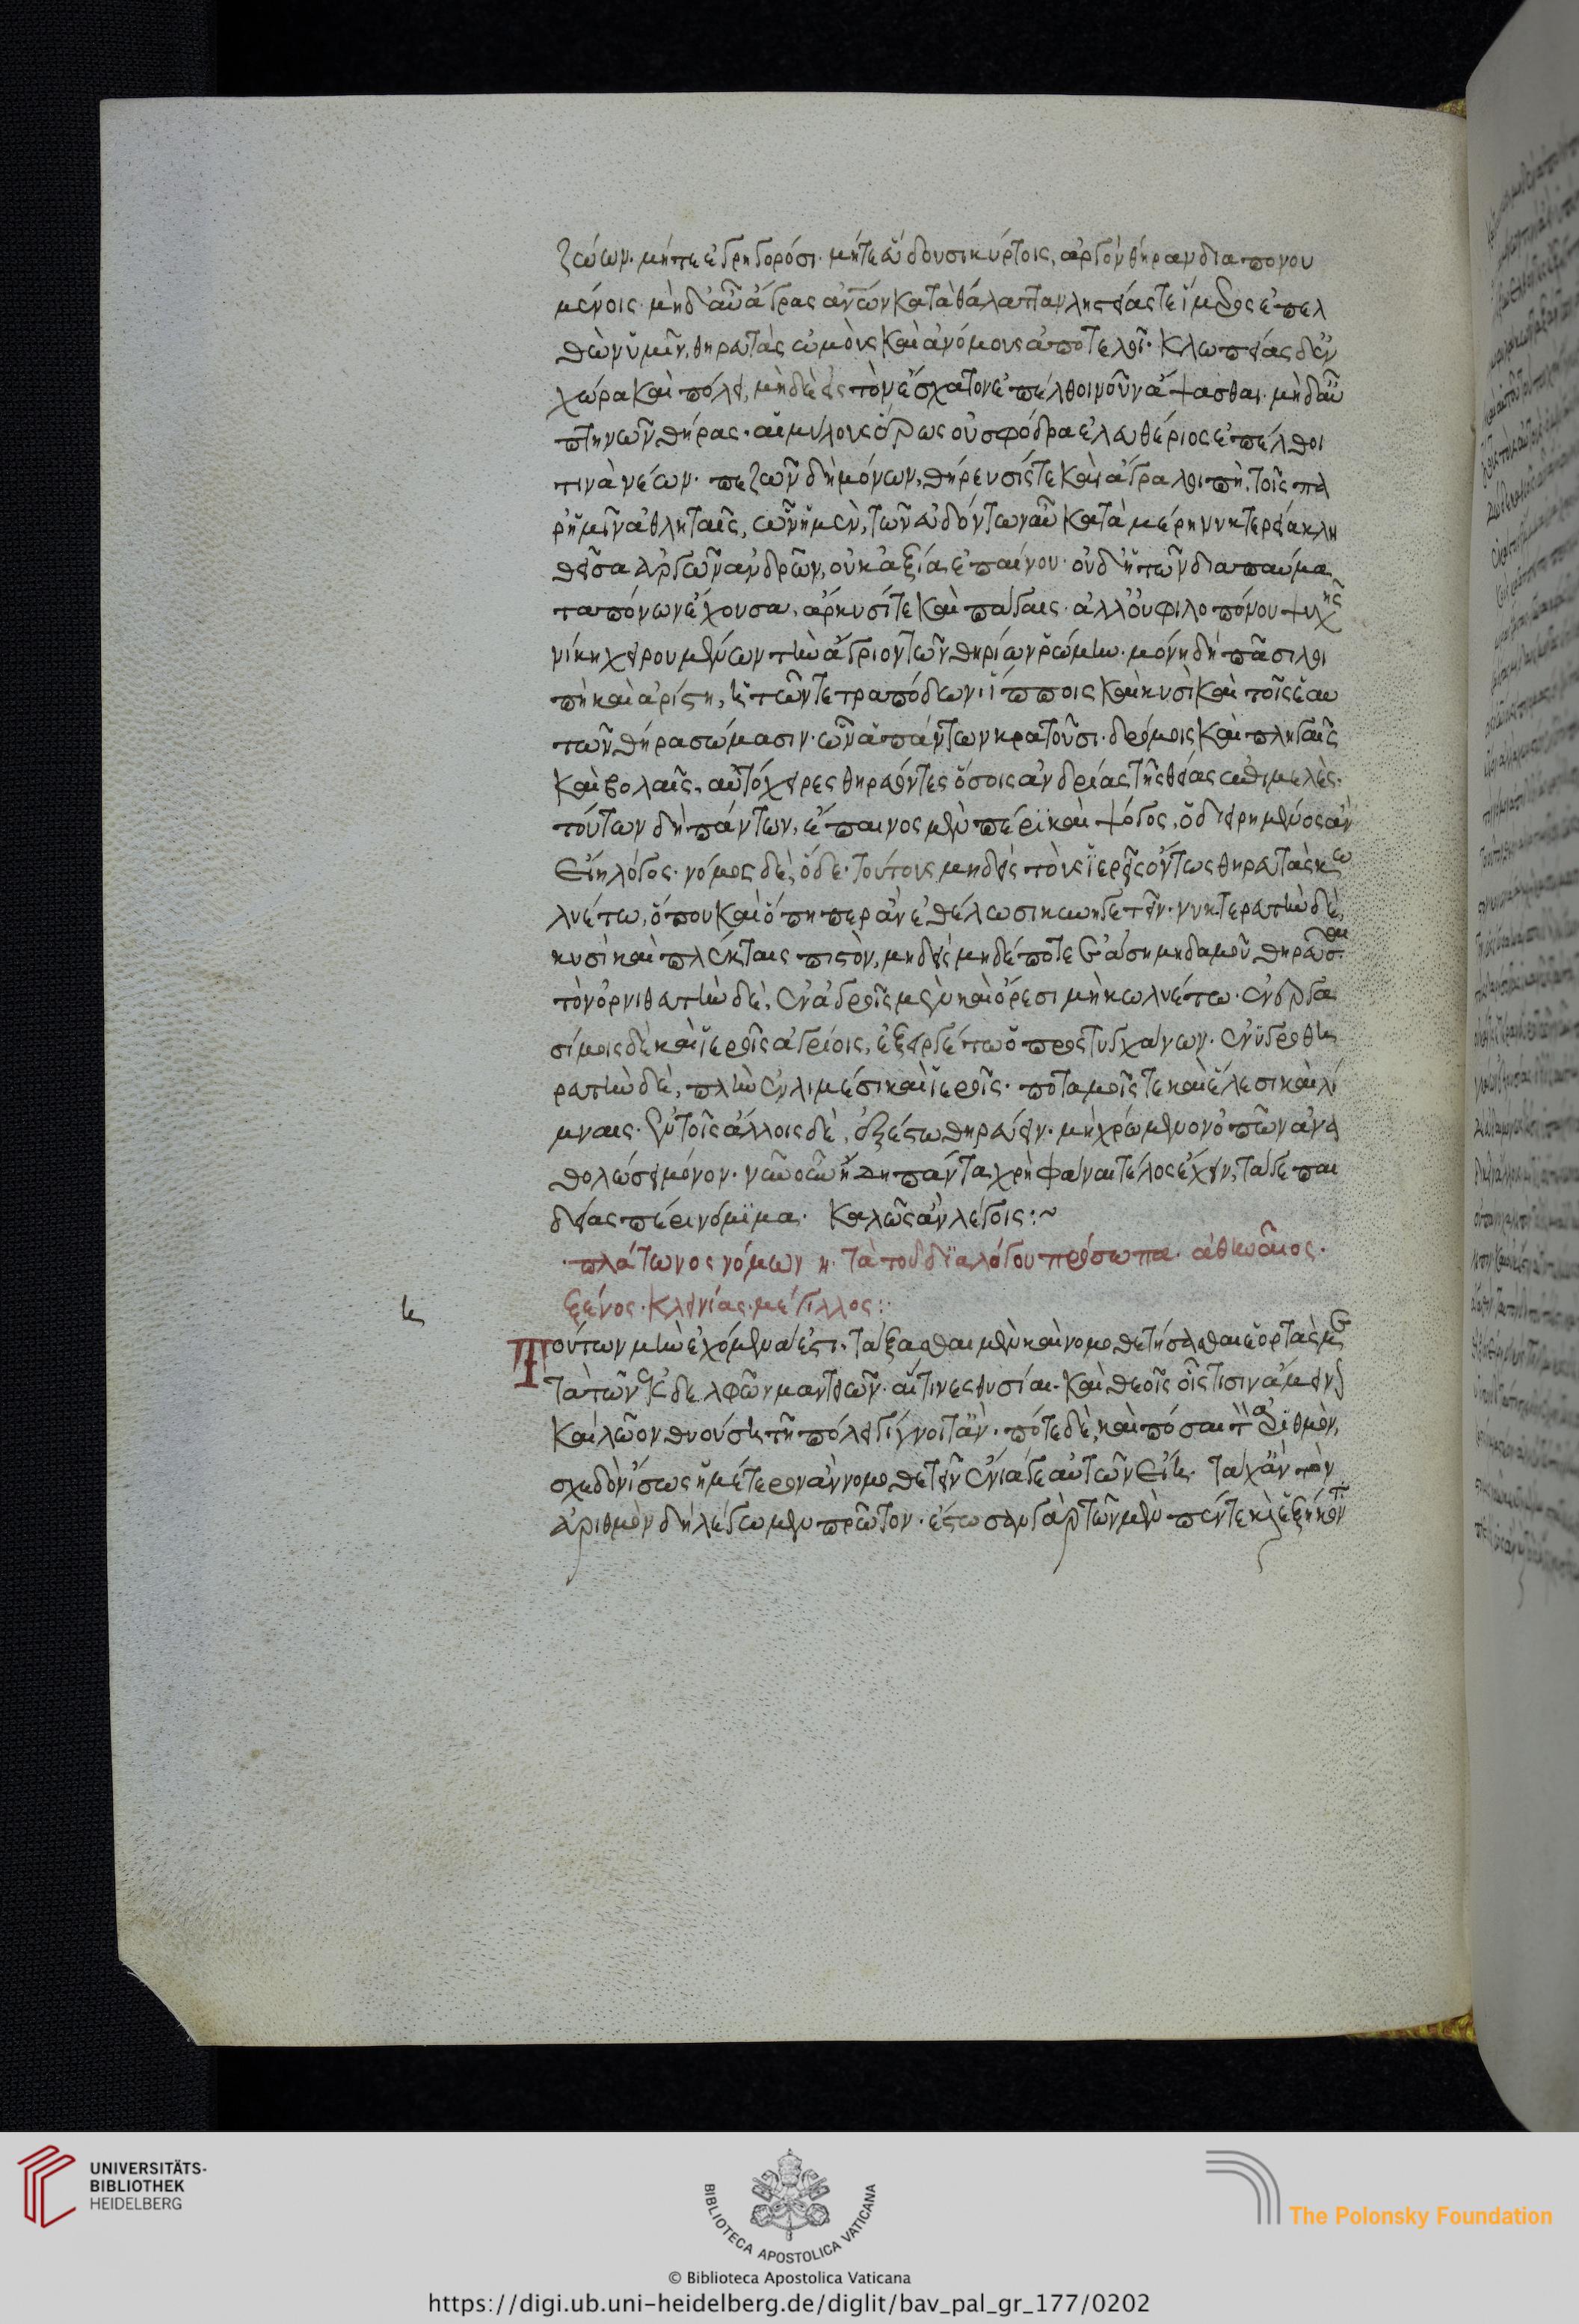 ζώων. μήτε ἐγρηγορόσι. μήτε εὕδουσι κύρτοις, ἀργὸν θήραν διαπονου
μένοις. μηδ' αὖ ἄγρας ἀνθρώπων κατὰ θάλατταν ληστείας τε ἵμερος ἐπελ
θὼν ὑμῖν, θηρευτὰς ὠμοὺς καὶ ἀνόμους ἀποτελοῖ. κλωπείας δ' ἐν
χώρα καὶ πόλει, μηδὲ εἰς τὸν ἔσχατον ἐπέλθοι νοῦν ἅψασθαι. μηδ' αὖ
πτηνῶν θήρας. αἱμύλος ἔρως οὐ σφόδρα ἐλευθέριος ἐπέλθοι
τινὰ νέων. πεζῶν δὴ μόνων, θήρευσίς τε καὶ ἄγρα λοιπὴ, τοῖς πα
ρ' ἡμῖν ἀθληταῖς, ὧν ἡ μὲν, τῶν εὑδόντων αὖ κατὰ μέρη νυκτερεία κλη
θεῖσα ἀργῶν ἀνδρῶν, οὐκ ἀξία ἐπαίνου. οὐδ' ἡ τῶν διαπαύμα
τα πόνων ἔχουσα, ἄρκυσί τε καὶ πάγαις. ἀλλ' οὐ φιλοπόνου ψυχῆς
νίκη χειρουμένων τὴν ἄγριον τῶν θηρίων ῥώμην. μόνη δὴ πᾶσι λοι
πὴ καὶ ἀρίστη, ἡ τῶν τετραπόδων ἵπποις καὶ κυσὶ καὶ τοῖς ἑαυ
τῶν θήρα σώμασιν. ὧν ἁπάντων κρατοῦσι. δρόμοις καὶ πληγαῖς
καὶ βολαῖς, αὐτόχειρες θηρεύοντες ὅσοις ἀνδρείας τῆς θείας ἐπιμελὲς.
τούτων δὴ πάντων, ἔπαινος μὲν πέρι καὶ ψόγος, ὁ διειρημένος ἂν
εἴη λόγος. νόμος δὲ, ὅδε. τούτους μηδεὶς τοὺς ἱεροὺς ὄντως θηρευτὰς κω
λυέτω, ὅπου καὶ ὅπῃ περ ἂν ἐθέλωσι κυνηγετεῖν. νυκτερευτὴν δὲ,
κυσὶ καὶ πλεκταῖς πιστὸν, μηδεὶς μηδέποτε ἐάσῃ μηδαμοῦ θηρεῦσαι.
τὸν ὀρνιθευτὴν δὲ, ἐν ἀργοῖς μὲν καὶ ὄρεσι μὴ κωλυέτω. ἐν ἐργα
σίμοις δὲ καὶ ἱεροῖς ἀγρίοις, ἐξειργέτω ὁ προστυγχάνων. ἐνυγροθη
ρευτὴν δὲ, πλὴν ἐν λιμέσι καὶ ἱεροῖς. ποταμοῖς τε καὶ ἕλεσι καὶ λί
μναις. ἐν τοῖς ἄλλοις δὲ, ἐξέστω θηρεύειν. μὴ χρώμενον ὀπῶν ἀνα
θολώσει μόνον. νῦν οὖν ἤδη πάντα χρὴ φάναι τέλος ἔχειν, τά γε παι
δείας πέρι νόμιμα. Καλῶς ἂν λέγοις:~
πλάτωνος νόμων η. τὰ τοῦ διαλόγου πρόσωπα. ἀθηναῖος.
ξένος. κλεινίας. μέγιλλος:
η
Τούτων μὴν ἐχόμενά ἐστι. τάξασθαι μὲν καὶ νομοθετήσασθαι ἑορτὰς με
τὰ τῶν ἐκ δελφῶν μαντειῶν. αἵτινες θυσίαι. καὶ θεοῖς οἷς τισιν ἄμεινον
καὶ λῷον θυούσῃ τῇ πόλει γίγνοιτ' ἄν. πότε δὲ, καὶ πόσαι τὸν ἀριθμὸν,
σχεδὸν ἴσως ἡμέτερον ἂν νομοθετεῖν ἔνιά γε αὐτῶν εἴη. τάχ' ἂν τὸν
ἀριθμὸν δὴ λέγωμεν πρῶτον. ἔστωσαν γὰρ τῶν μὲν πέντε καὶ ἑξήκοντα
UNIVERSITÄTS-
BIBLIOTHEK
HEIDELBERG
BIBLIOTECA APOSTOLICA VATICANA
The Polonsky Foundation
© Biblioteca Apostolica Vaticana
https://digi.ub.uni-heidelberg.de/diglit/bav_pal_gr_177/0202